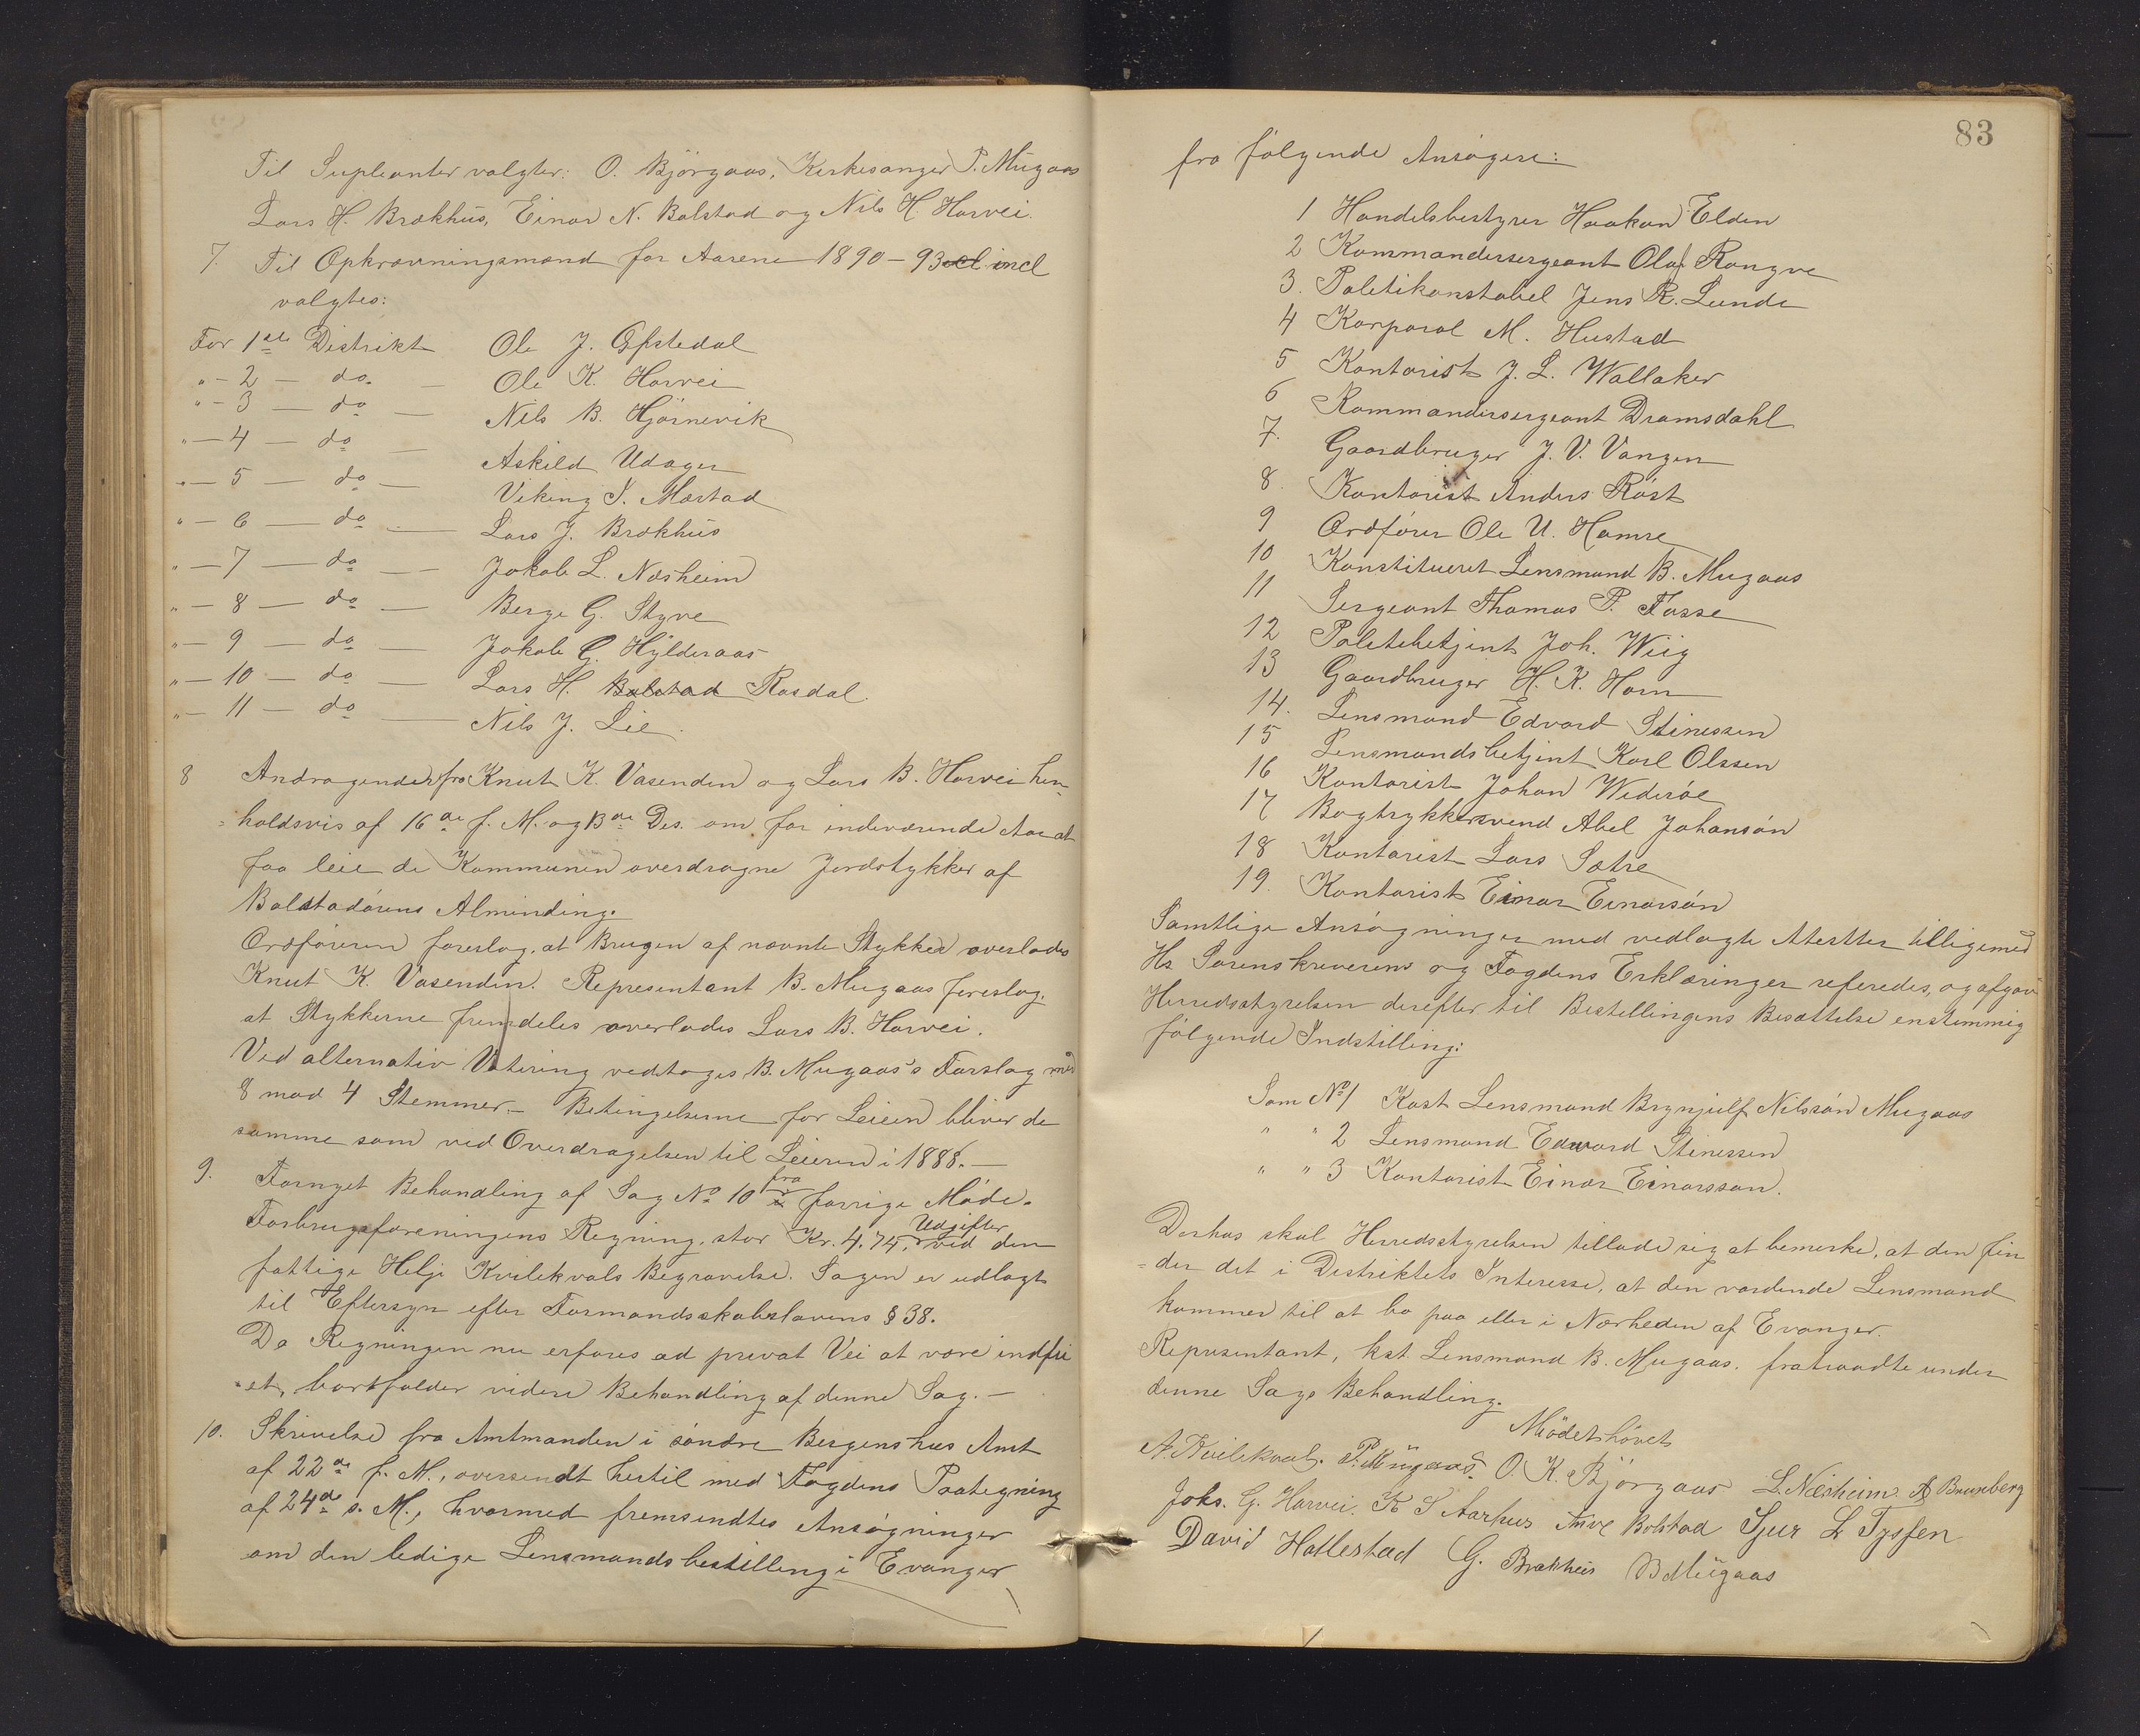 Til Supleanter valgtes: O. Bjørgaas, Kirkesanger P. Mügaas
Lars H. Brækhüs, Einar N. Bolstad og Nils H. Horvei.
7. Til Opkrævningsmænd for Aarene 1890-93 incl
valgtes:
For 1ste Distrikt Ole J. Øfstedal
" - 2 - do - Ole K. Horvei
" - 3 - do - Nils B. Hjørnevik
" - 4 - do - Askild Udager
" - 5 - do - Viking I. Mæstad
" - 6 - do - Lars J. Brækhüs
" - 7 - do - Jakob L. Næsheim
" - 8 - do - Berge G. Styve
" - 9 - do - Jakob G. Hylderaas
" - 10 - do - Lars H. Bolstad Rasdal.
" - 11 - do - Nils J. Lie.
8 Andragender fra Knut K. Vasenden og Lars B. Horvei hen-
=holdsvis af 16de f. M. og 13de Ds. om for indeværende Aar at
faa leie de Kommunen overdragne Jordstykker af
Bolstadørens Alminding.
Ordføreren foreslog, at Brugen af nævnte Stykker overlades
Knut K. Vasenden. Representant B. Mugaas foreslog,
at Stykkerne fremdeles overlades Lars B. Horvei.
Ved alternativ Votering vedtages B. Mugaas's Forslag med
8 mod 4 Stemmer. - Betingelserne for Leien bliver de
samme som ved Overdragelsen til Leieren i 1888. -
9. Fornyet Behandling af Sag No 10 fra forrige Møde.
Forbrugsforeningens Regning, stor Kr. 4.74, Udgifter ved den
fattige Helje Kvilekvals Begravelse. Sagen er udlagt
til Eftersyn efter Formandsskabslovens § 38.
Da Regningen nu erfares ad privat Vei at være indfri
-et, bortfalder videre Behandling af denne Sag. -
10. Skrivelse fra Amtmanden i søndre Bergenshus Amt
af 22de f. M., oversendt hertil med Fogdens Paategning
af 24de s. M., hvormed fremsendtes Ansøgninger
om den ledige Lensmandsbestilling i Evanger
83
fra følgende Ansøgere:
1 Handelsbestyrer Haakon Elden
2 Kommandersergeant Olaf Rongve
3. Politikonstabel Jens R. Lunde
4 Korporal M. Hustad
5 Kontorist J. L. Wallaker
6 Kommandersergeant Dramsdahl
7. Gaardbruger J. V. Vangen
8. Kontorist Anders Røst
9 Ordfører Ole U. Hamre
10 Konstitueret Lensmand B. Mugaas
11 Sergeant Thomas P. Fosse
12 Politibetjent Joh. Wiig
13 Gaardbruger H. K. Horn
14. Lensmand Edvard Stinessen
15 Lensmandsbetjent Karl Olssen
16 Kontorist Johan Widerøe
17 Bogtrykkersvend Abel Johansøn
18 Kontorist Lars Sætre
19. Kontorist Einar Einarsøn
Samtlige Ansøgninger med vedlagte Atester tilligemed
Hr Sorenskriverens og Fogdens Erklæringer refereredes, og afgav
Herredsstyrelsen derefter til Bestillingens Besættelse enstemmig
følgende Indstilling:
Som No 1 Kost Lensmand Brynjulf Nilssøn Mugaas
" " 2 Lensmand Edvard Stinessen
" " 3 Kontorist Einar Einarsson.
Derhos skal Herredsstyrelsen tillade sig at bemerke, at den fin
=der det i Distriktets Interesse, at den vordende Lensmand
kommer til at bo paa eller i Nærheden af Evanger.
Representant, kst. Lensmand B. Mugaas. fratraadte under
denne Sags Behandling.
Mødet hævet
A. Kvilekval. P. Mügaas. O. K. Bjørgaas L. Næsheim. A Brunborg
Johs. G. Horvei. K S Aarhus Bolstad Sjur L Tyssen
David Hallestad G. Brækhüs B Mügaas